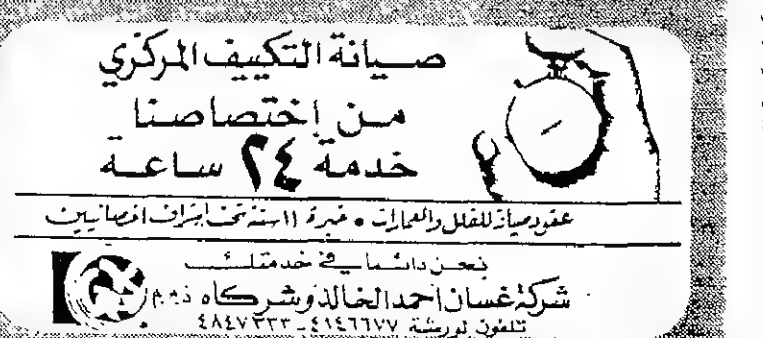 صيانة التكييف المركزي
من إختصاصنا
خدمة ٢٤ ساعة
عقود صيانة للفلل والعمارات • خبرة ١١ سنة تحت إشراف اخصائيين
نحن دائما في خدمتك
شركة غسان احمد الخالد وشركاه ذ.م.م
تلفون لورشة ٤١٤٦٦٧٧ - ٤٨٤٧٣٣٣